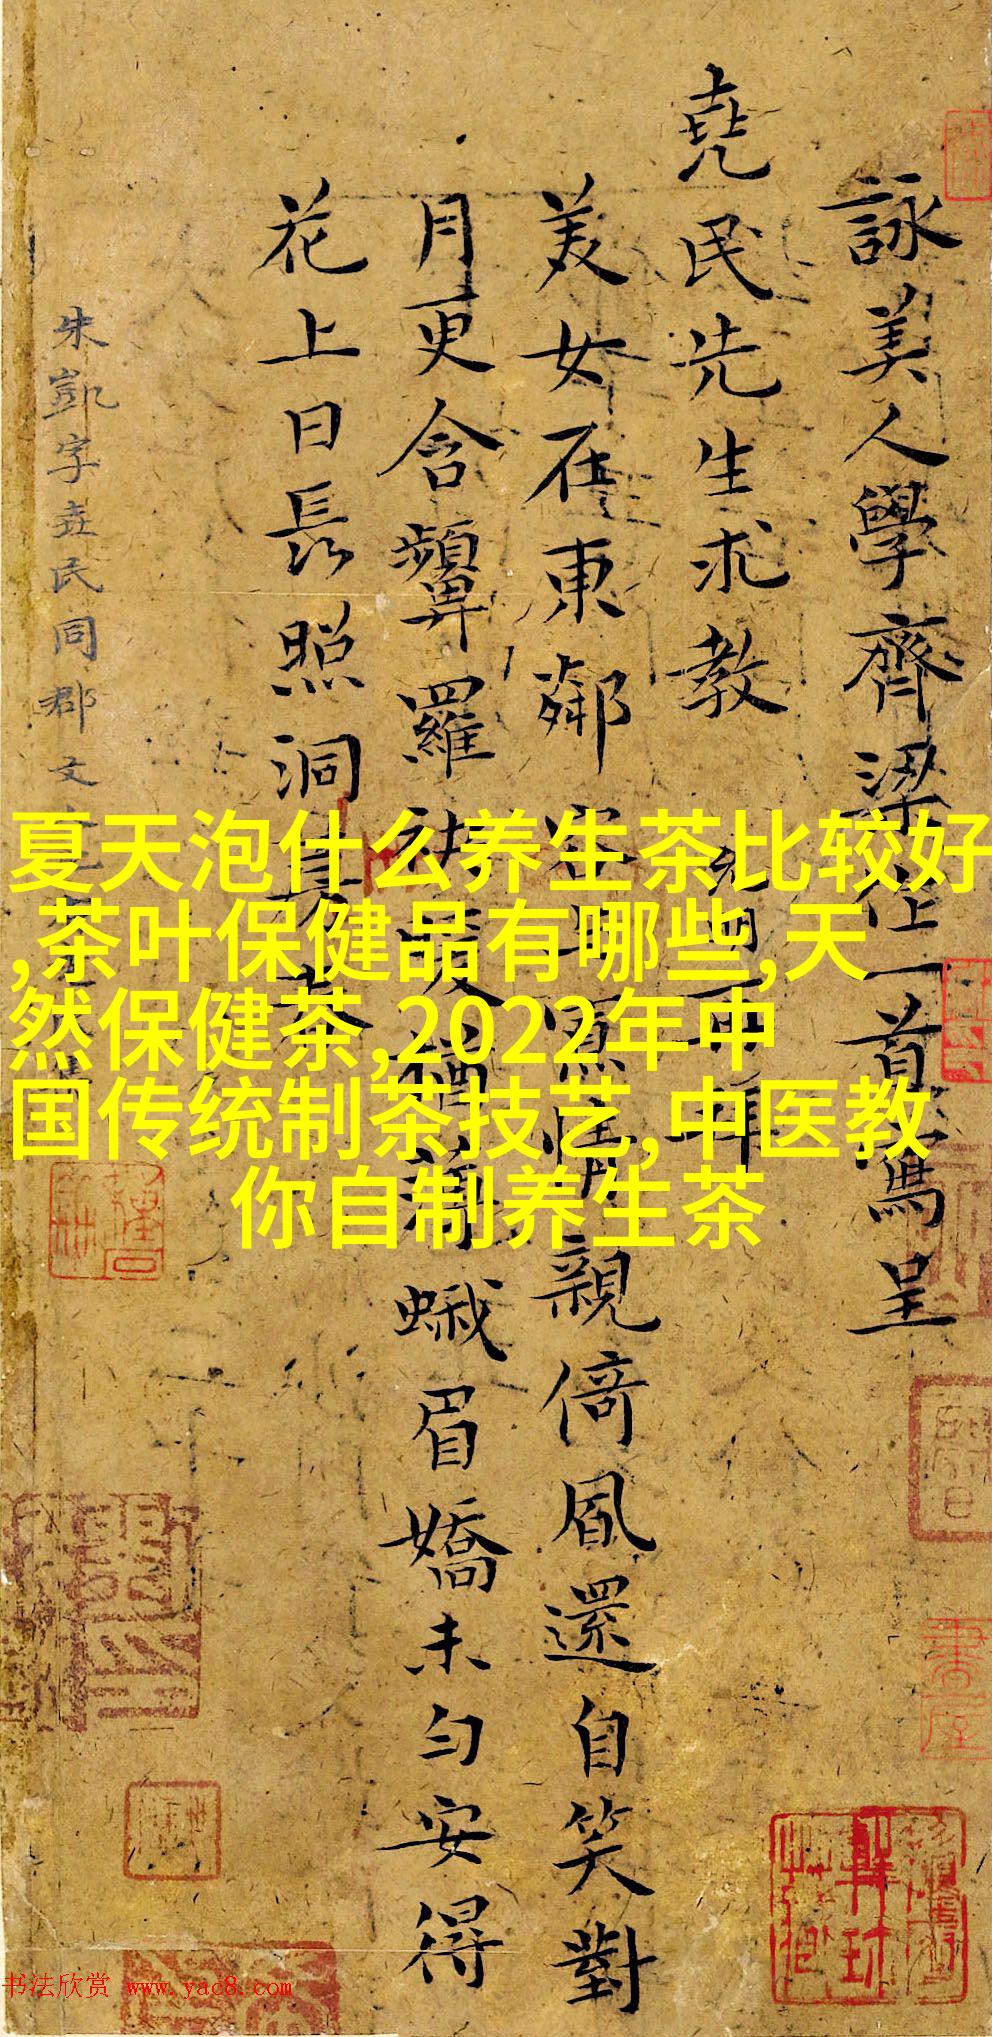 詠美人學齊梁体一首寫呈
堯民先生求教
美女在東鄰 親倚風還自笑對
月更含顰羅 蛾眉嬌未勻安得
花上日長照洞
朱凱字堯民同郡文
夏天泡什么养生茶比较好
,茶叶保健品有哪些,天
然保健茶,2022年中
国传统制茶技艺,中医教
你自制养生茶
书法欣赏 www.yac8.com